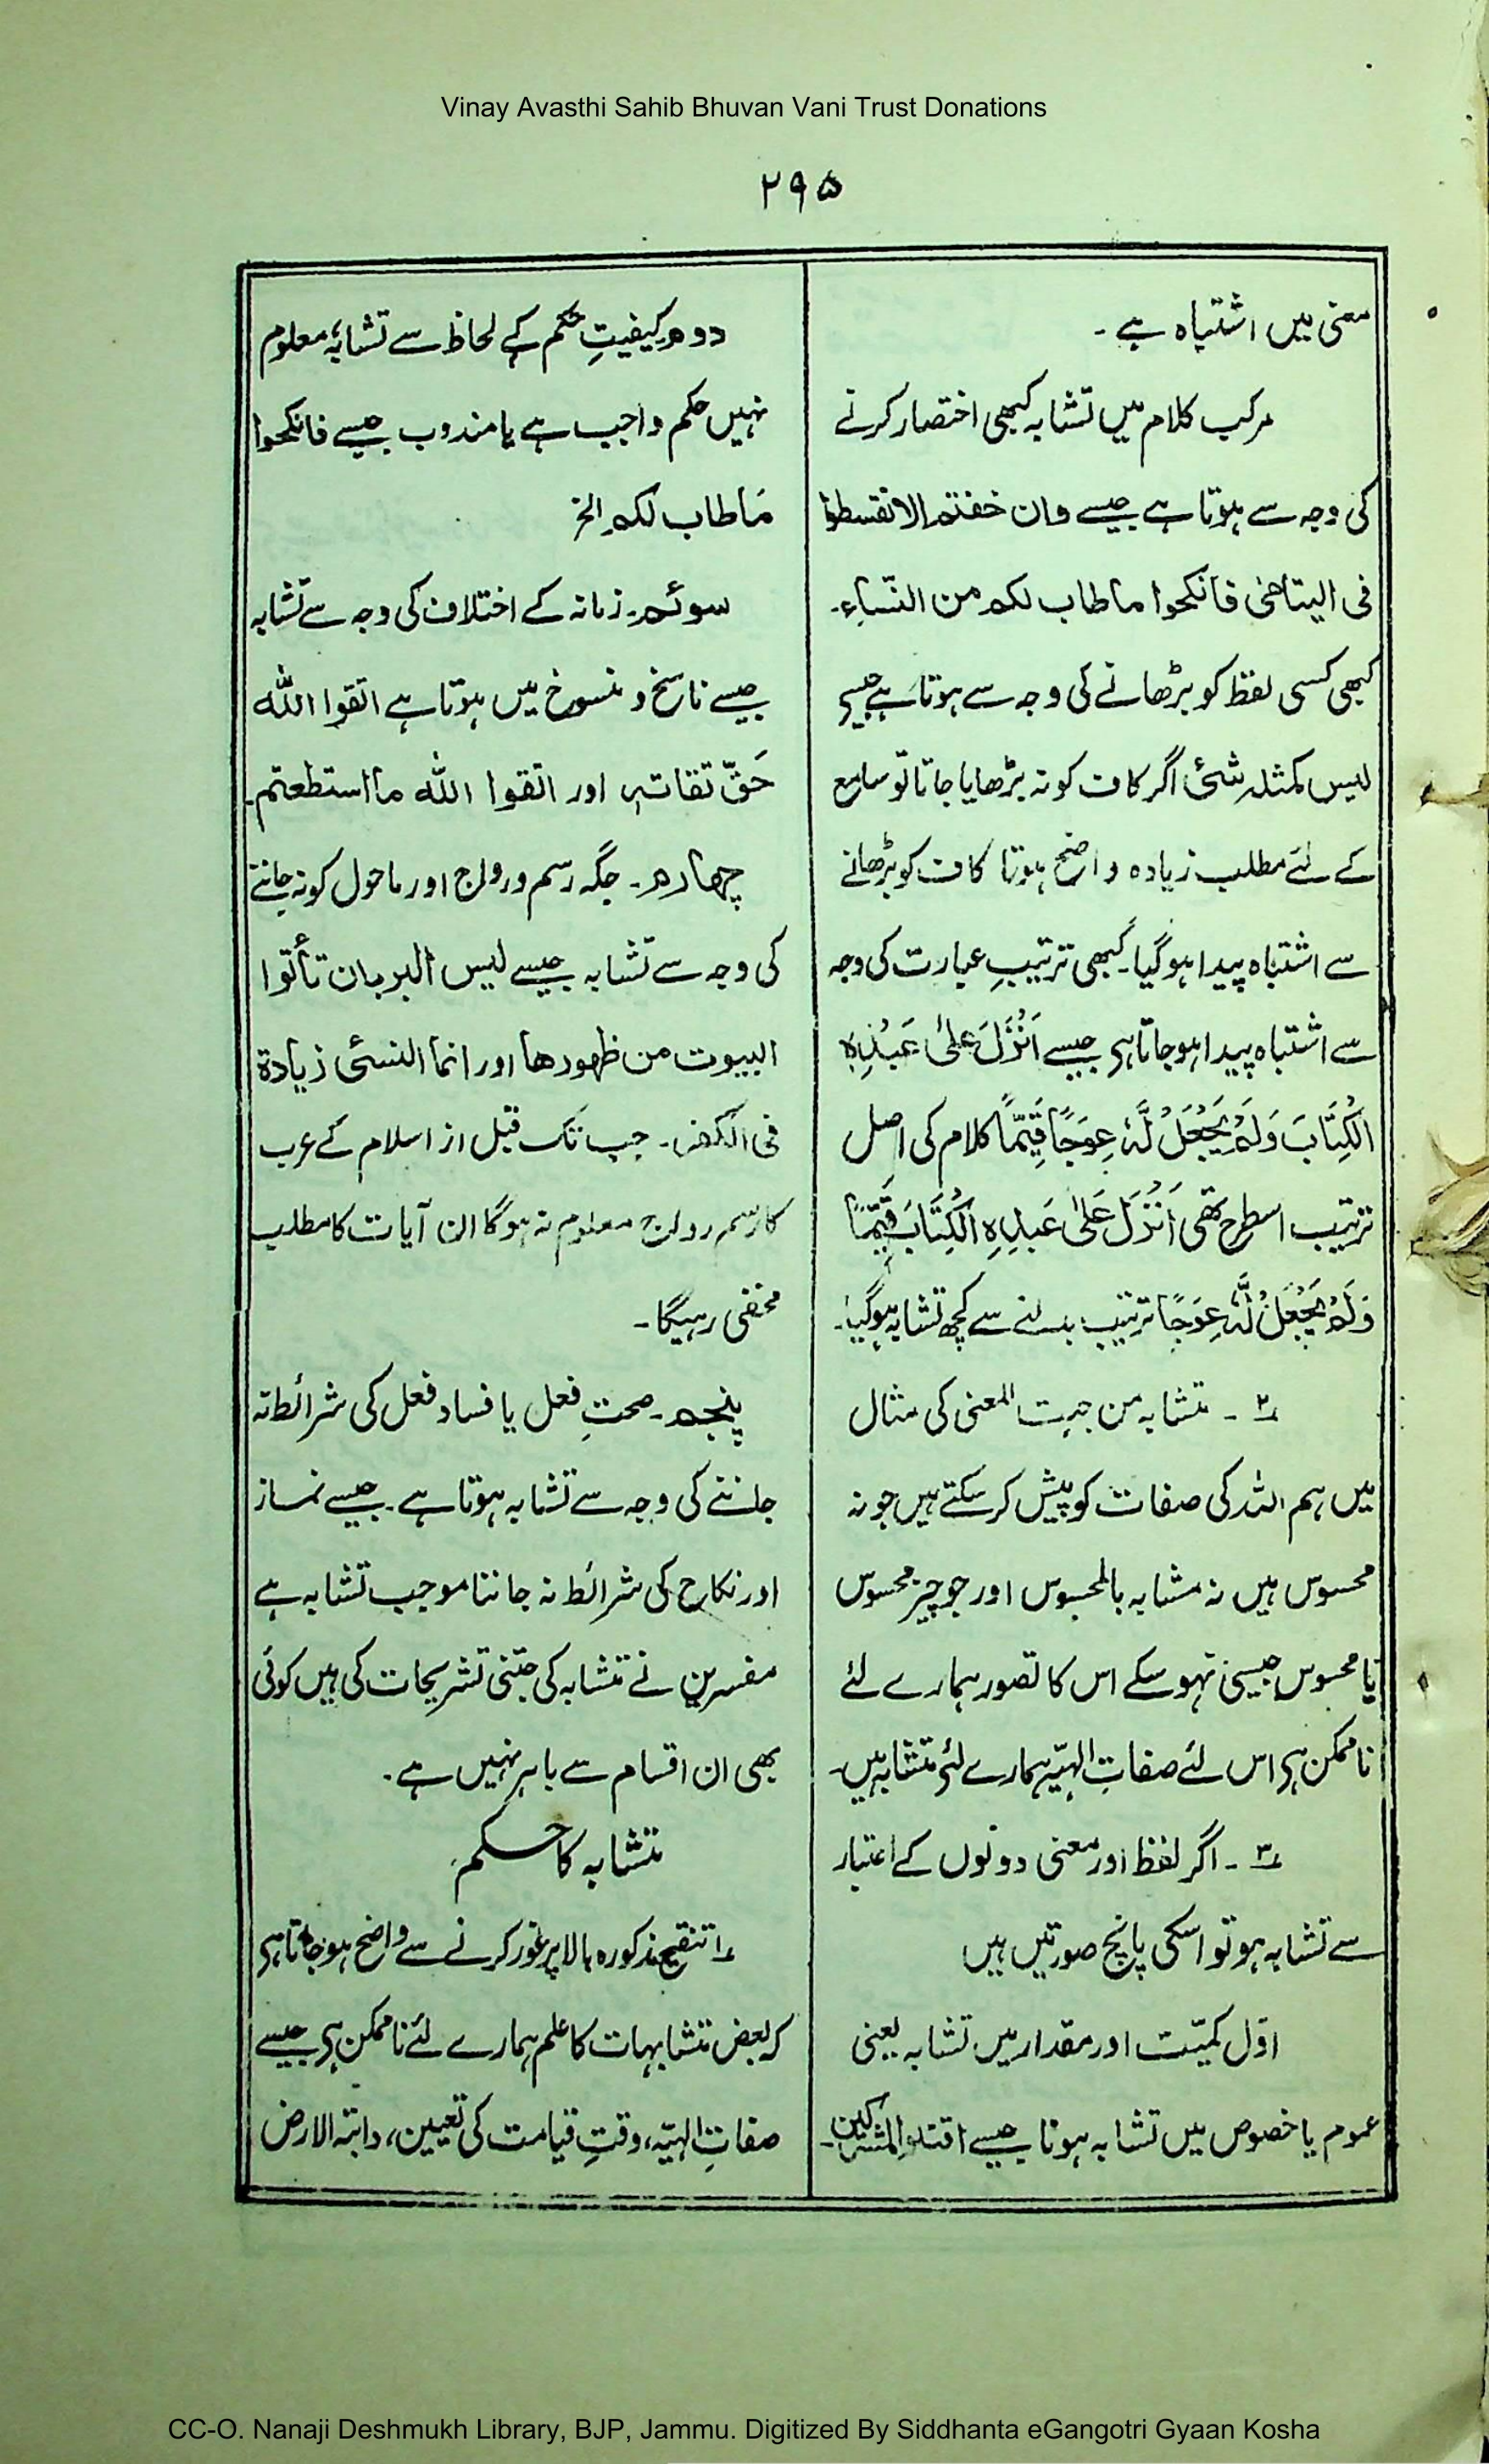 Vinay Avasthi Sahib Bhuvan Vani Trust Donations
۲۹۵
معنی میں اشتباہ ہے ۔
مرکب کلام میں تشابہ کبھی اختصار کرنے
کی وجہ سے ہوتا ہے جیسے وان خفتم الا تقسطوا
فی الیتامٰی فانکحوا ما طاب لکم من النّساء۔
کبھی کسی لفظ کو بڑھانے کی وجہ سے ہوتا ہے جیسے
لیس کمثلہ شئ اگر کاف کو نہ بڑھایا جاتا تو سامع
کے لئے مطلب زیادہ واضح ہوتا کاف کو بڑھانے
سے اشتباہ پیدا ہوگیا۔ کبھی ترتیبِ عبارت کی وجہ
سے اشتباہ پیدا ہوجاتا ہی جیسے اَنْزَلَ عَلیٰ عَبْدِہِ
الْکِتَابَ وَلَمْ یَجْعَلْ لَّہٗ عِوَجًا قَیِّمًا کلام کی اصل
ترتیب اسطرح تھی اَنْزَلَ عَلیٰ عَبْدِہِ الْکِتَابَ قَیِّمًا
وَلَمْ یَجْعَلْ لَّہٗ عِوَجًا ترتیب بدلنے سے کچھ تشابہ ہوگیا۔
۲؎ ۔ تشابہ من جہت المعنی کی مثال
میں ہم اللہ کی صفات کو پیش کرسکتے ہیں جو نہ
محسوس ہیں نہ مشابہ بالمحسوس اور جو چیز محسوس
یا محسوس جیسی نہوسکے اس کا تصور ہمارے لئے
ناممکن ہی اس لئے صفاتِ الہیّہ ہمارے لئے متشابہ ہیں۔
۳؎ ۔ اگر لفظ اور معنی دونوں کے اعتبار
سے تشابہ ہو تو اسکی پانچ صورتیں ہیں
اوّل کمیّت اور مقدار میں تشابہ یعنی
عموم یا خصوص میں تشابہ ہونا جیسے اقتلوا المشرکین۔
دوم کیفیتِ حکم کے لحاظ سے تشابہ، معلوم
نہیں حکم واجب ہے یا مندوب جیسے فانکحوا
مَا طاب لکم الخ
سوئم۔ زمانہ کے اختلاف کی وجہ سے تشابہ
جیسے ناسخ و منسوخ میں ہوتا ہے اتقوا اللّٰہ
حَقّ تقاتہٖ اور اتقوا اللّٰہ ما استطعتم۔
چھارم۔ جگہ رسم و رواج اور ماحول کو نہ جاننے
کی وجہ سے تشابہ جیسے لیس البر بان تأتوا
البیوت من ظھورھا اور انما النسئ زیادۃ
فی الکفر۔ جب تک قبل از اسلام کے عرب
کا رسم رواج معلوم نہ ہوگا ان آیات کا مطلب
مخفی رہیگا۔
پنجم۔ صحتِ فعل یا فساد فعل کی شرائط نہ
جاننے کی وجہ سے تشابہ ہوتا ہے۔ جیسے نماز
اور نکاح کی شرائط نہ جاننا موجب تشابہ ہے
مفسرین نے متشابہ کی جتنی تشریحات کی ہیں کوئی
بھی ان اقسام سے باہر نہیں ہے۔
متشابہ کا حکم
۱؎ تنقیح مذکورہ بالا پر غور کرنے سے واضح ہوجاتا ہی
کہ بعض متشابہات کا علم ہمارے لئے ناممکن ہی جیسے
صفاتِ الہیّہ، وقتِ قیامت کی تعیین، دابتہ الارض
CC-O. Nanaji Deshmukh Library, BJP, Jammu. Digitized By Siddhanta eGangotri Gyaan Kosha